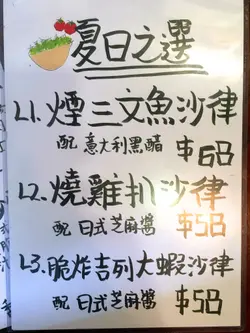 夏日之選
L1. 煙三文魚沙律
配 意大利黑醋 $68
L2. 燒雞扒沙律
配 日式芝麻醬 $58
L3. 脆炸吉列大蝦沙律
配 日式芝麻醬 $58